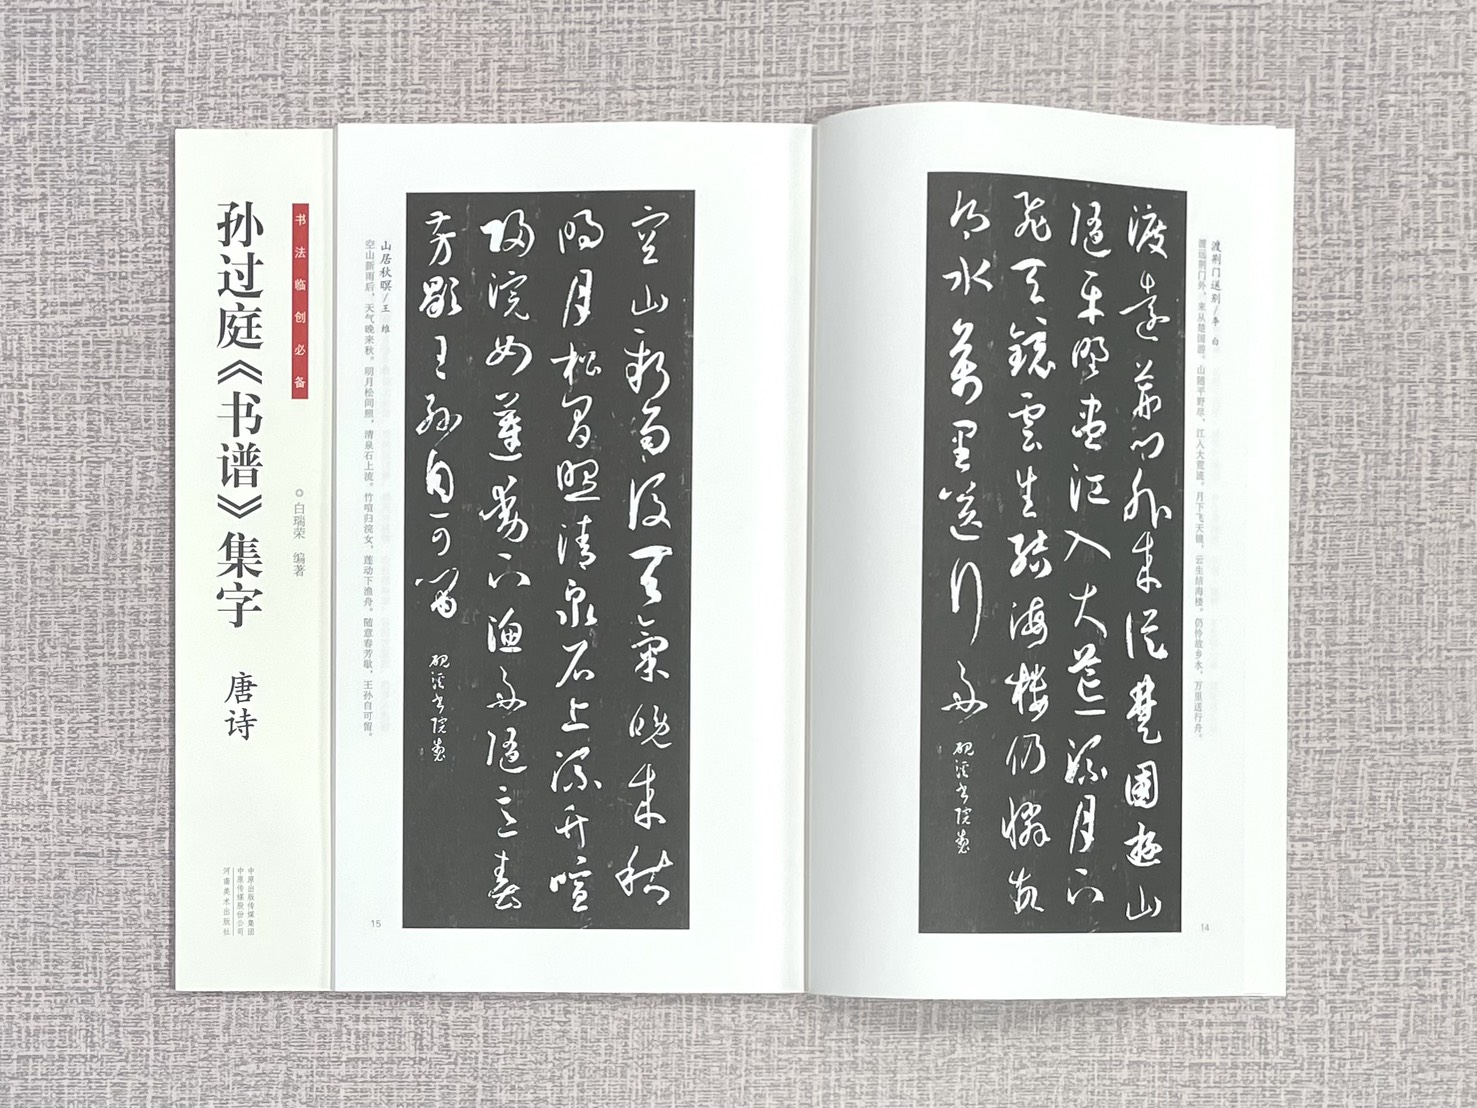 书法临创必备
孙过庭《书谱》集字 唐诗
白瑞荣 编著
中原出版传媒集团
中原传媒股份公司
河南美术出版社
渡荆门送别/李 白
渡远荆门外，来从楚国游。山随平野尽，江入大荒流。月下飞天镜，云生结海楼。仍怜故乡水，万里送行舟。
渡遠荊門外來從楚國遊山
隨平野盡江入大荒流月下
飛天鏡雲生結海樓仍憐故
鄉水萬里送行舟
硯溪書院製
14
空山新雨後天氣晚來秋
明月松間照清泉石上流竹喧
歸浣女蓮動下漁舟隨意春
芳歇王孫自可留
硯溪書院製
山居秋暝/王 维
空山新雨后，天气晚来秋。明月松间照，清泉石上流。竹喧归浣女，莲动下渔舟。随意春芳歇，王孙自可留。
15